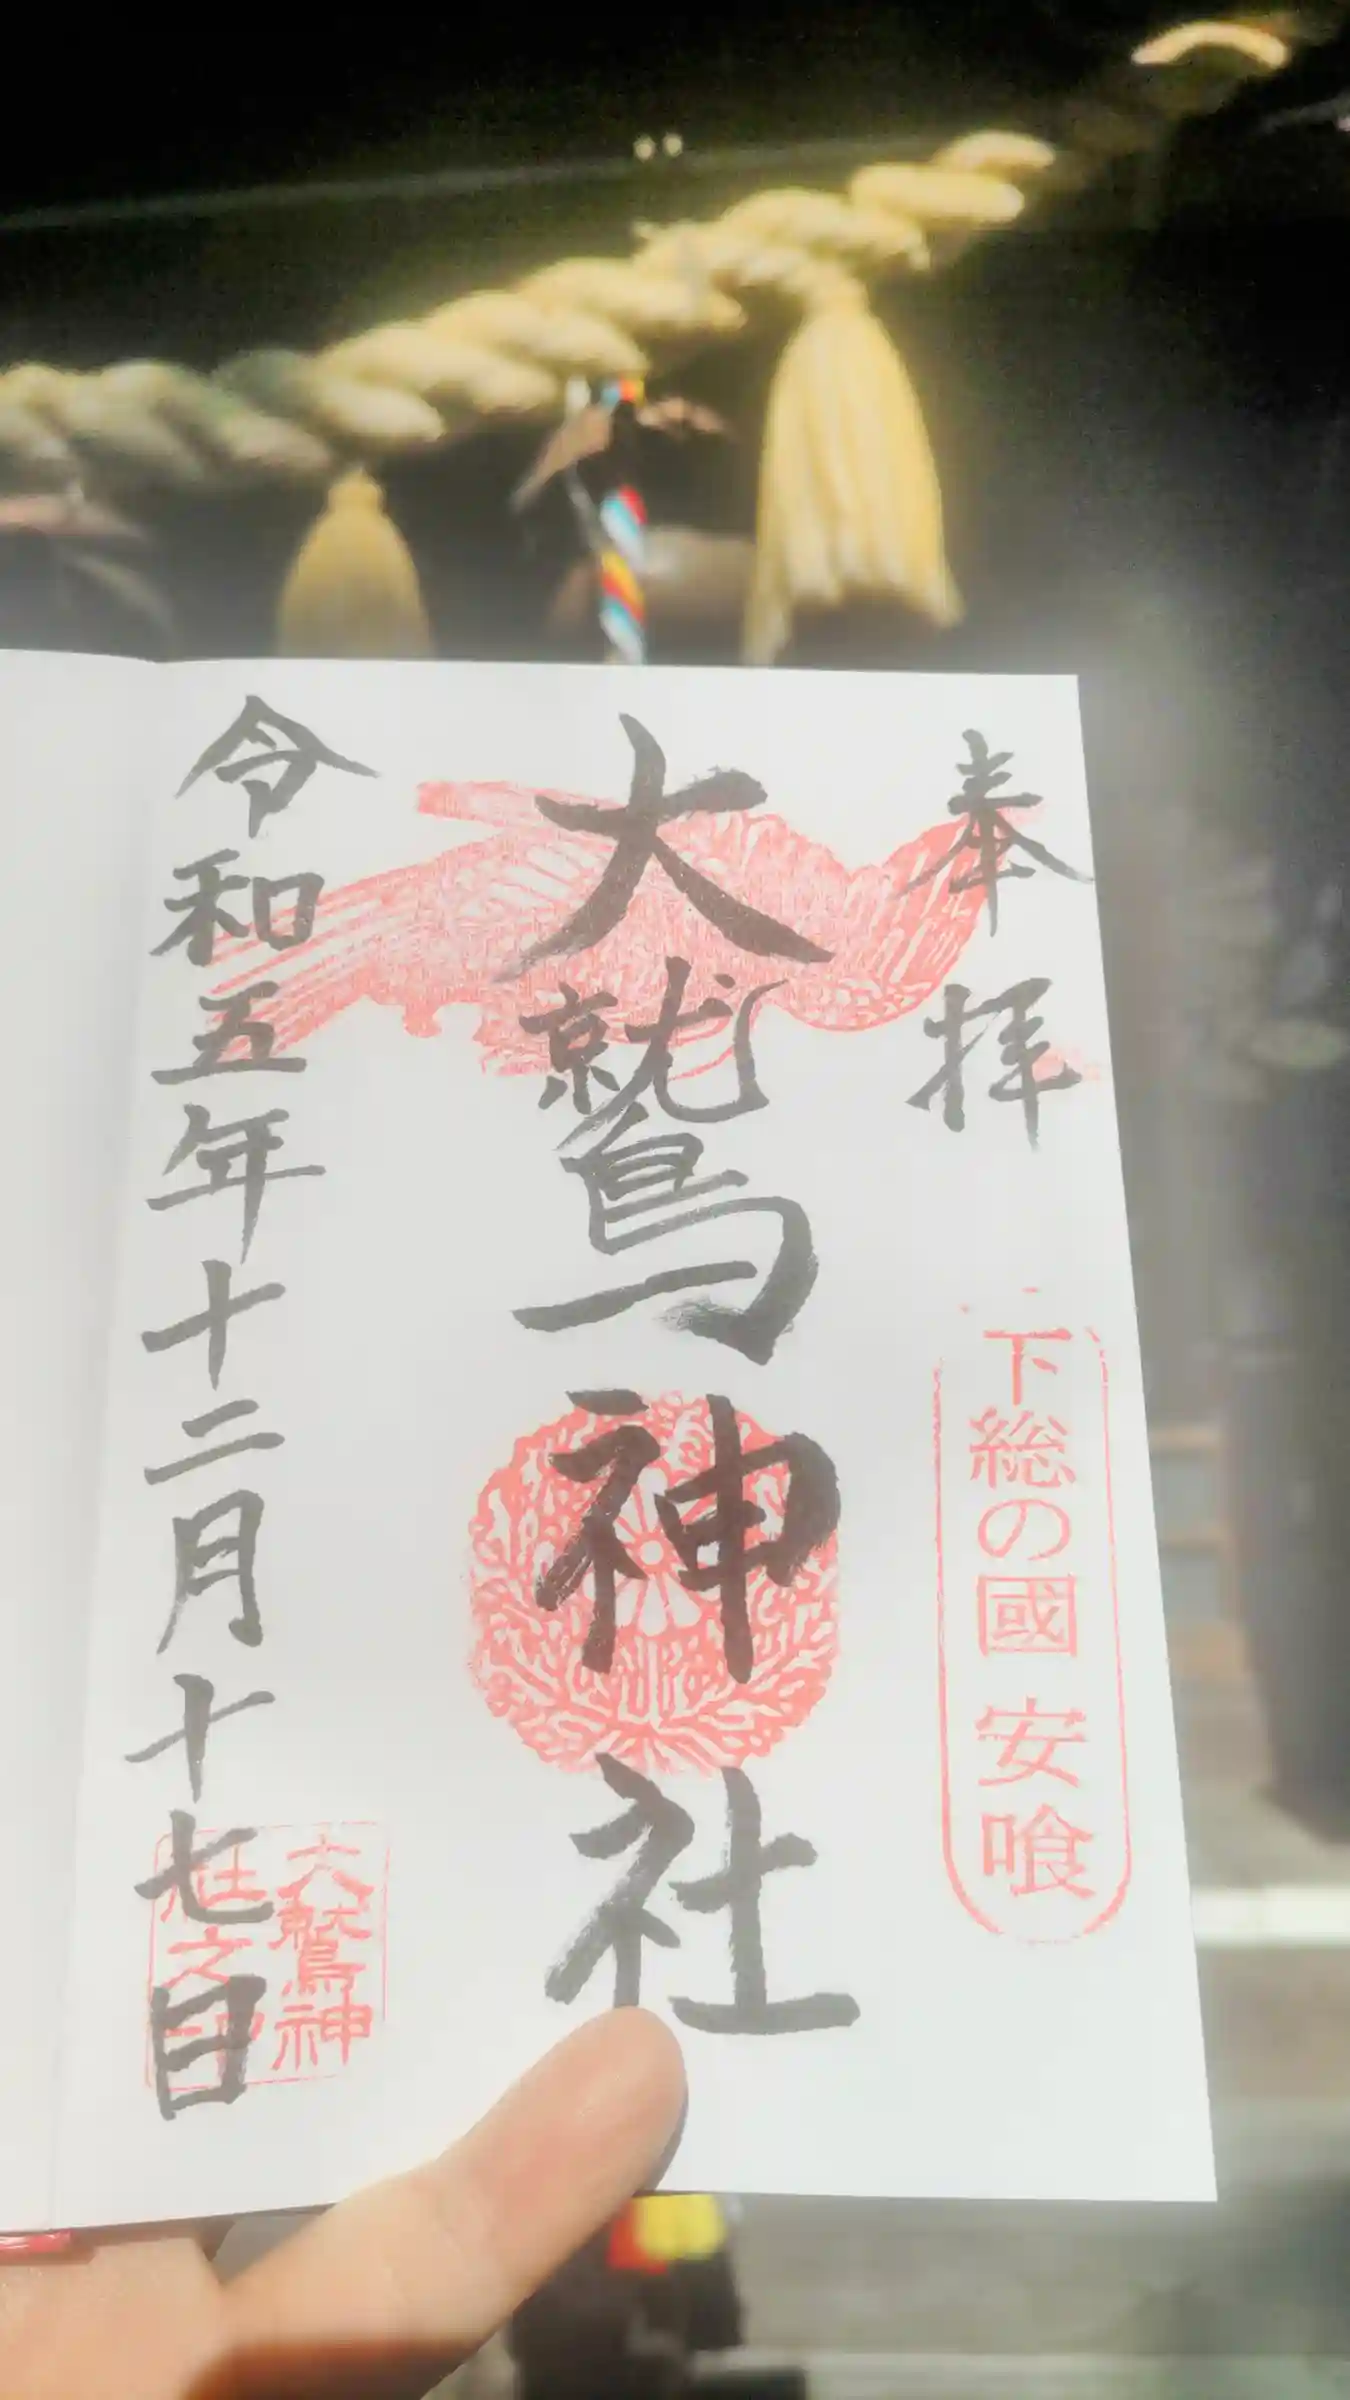 奉拝
下総の國 安喰
大鷲神社
令和五年十二月十七日
大鷲神
社之印